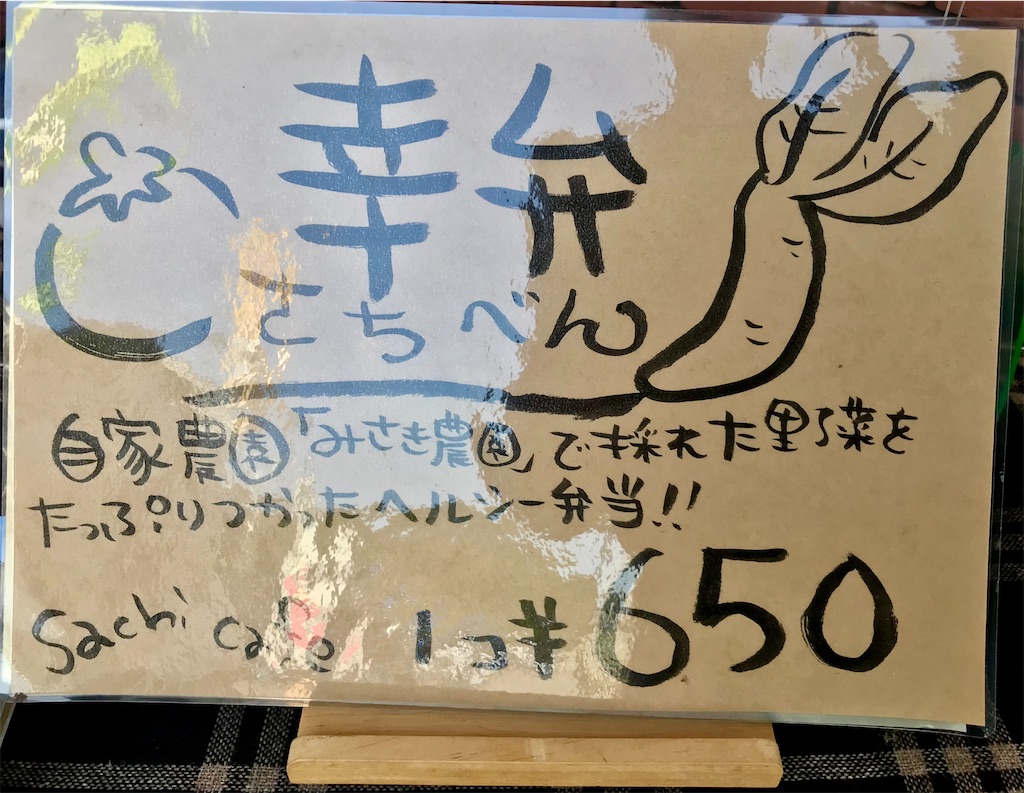 幸弁
さちべん
自家農園「みさき農園」で採れた野菜を
たっぷりつかったヘルシー弁当!!
Sachi cafe 1つ¥650